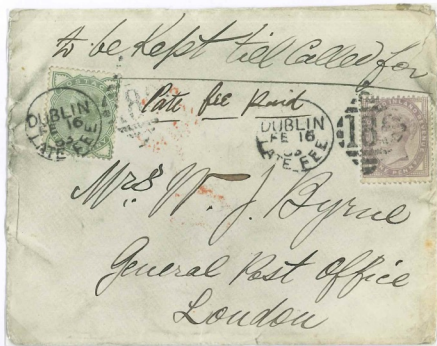 to be Kept till Called for
Late fee paid
DUBLIN
FE 16
LATE FEE
DUBLIN
FE 16
LATE FEE
186
Mrs W. J. Byrne
General Post Office
London